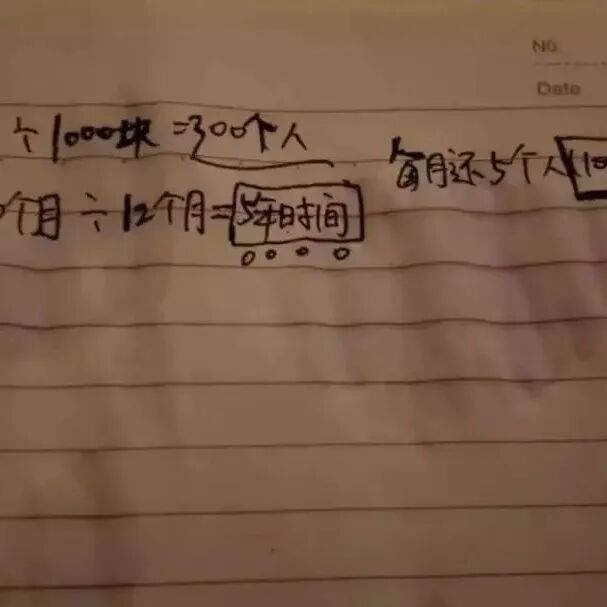 No.
Date
÷1000块=300个人
每月还5个人(10
0个月÷12个月=5年时间